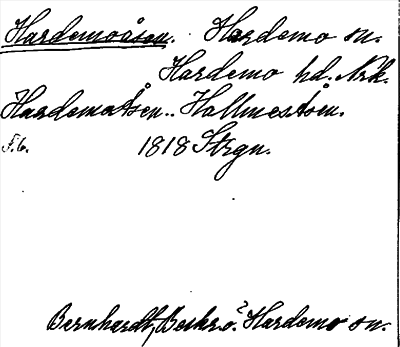 Hardemoåsen. Hardemo sn.
Hardemo hd. Nrk.
Hardemoåsen.. Hallmesåsen.
F.b. 1818 Strgn.
Bernhardt, Beskr. o. Hardemo sn.